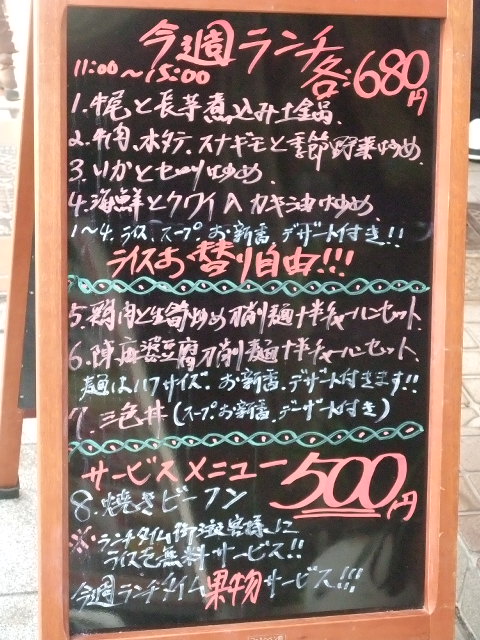 今週ランチ
11:00～15:00 各:680円
1.牛尾と長芋煮込み土鍋.
2.牛肉、ホタテ、スナギモと季節野菜炒め.
3.いかとセロリ炒め.
4.海鮮とクワイ入カキ油炒め.
1～4.ライス、スープ、お新香、デザート付き!!
ライスお替り自由!!!
5.鶏肉と生姜炒め刀削麺+半チャーハンセット.
6.陳麻婆豆腐刀削麺+半チャーハンセット.
麺はハーフサイズ.お新香、デザート付きます!!
7.三色丼(スープお新香、デザート付き)
サービスメニュー 500円
8.焼きビーフン
※ランチタイム御注文客様に
ライスを無料サービス!!
今週ランチタイム果物サービス!!!